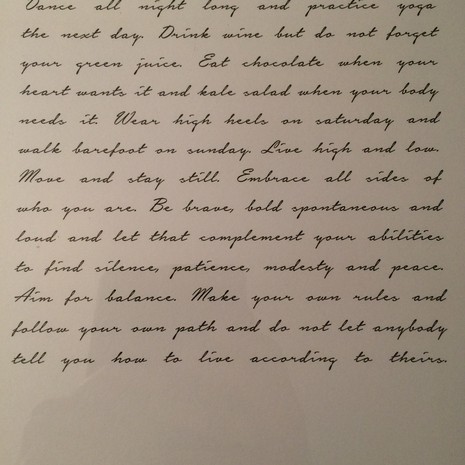 Dance all night long and practice yoga
the next day. Drink wine but do not forget
your green juice. Eat chocolate when your
heart wants it and kale salad when your body
needs it. Wear high heels on saturday and
walk barefoot on sunday. Live high and low.
Move and stay still. Embrace all sides of
who you are. Be brave, bold spontaneous and
loud and let that complement your abilities
to find silence, patience, modesty and peace.
Aim for balance. Make your own rules and
follow your own path and do not let anybody
tell you how to live according to theirs.